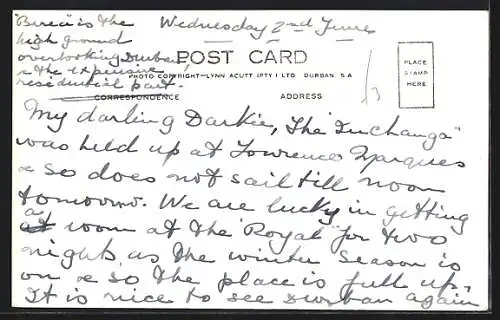 "Berea is the
high ground
overlooking Durban,
& the expensive
residential part.
Wednesday 2nd June
POST CARD
PHOTO COPYRIGHT—LYNN ACUTT (PTY) LTD DURBAN, S.A
CORRESPONDENCE
ADDRESS
PLACE
STAMP
HERE
My darling Darkie, The "Inchanga"
was held up at Lourenco Marques
& so does not sail till noon
tomorrow. We are lucky in getting
a room at the "Royal" for two
nights, as the winter season is
on & so the place is full up.
It is nice to see Durban again